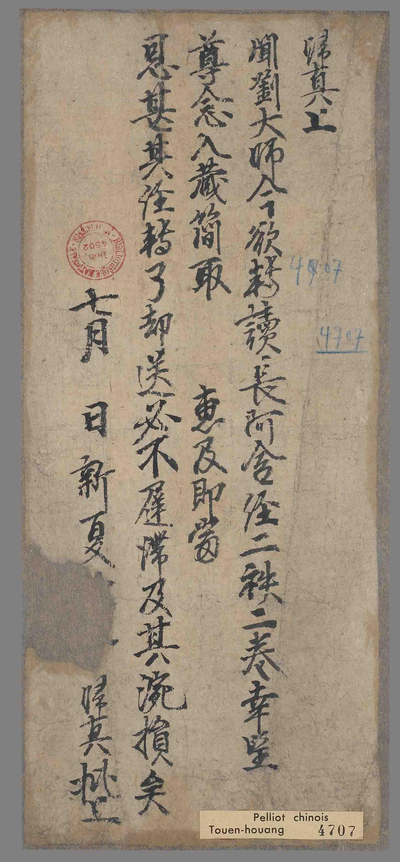 歸真上
聞劉大師今欲轉讀長阿含經二袟二卷幸望
尊念入藏簡取 惠及即當
恩甚其經轉了却送必不遲滯及其涴損矣
七月 日新夏
歸真狀上
4707
4707
Pelliot chinois
Touen-houang 4707